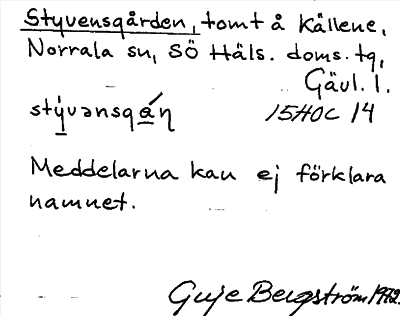 Styvensgården, tomt å Källene,
Norrala sn, SÖ Häls. doms. tg,
Gävl. l.
stývənsgáη 15HOC 14
Meddelarna kan ej förklara
namnet.
Guje Bergström 1972.